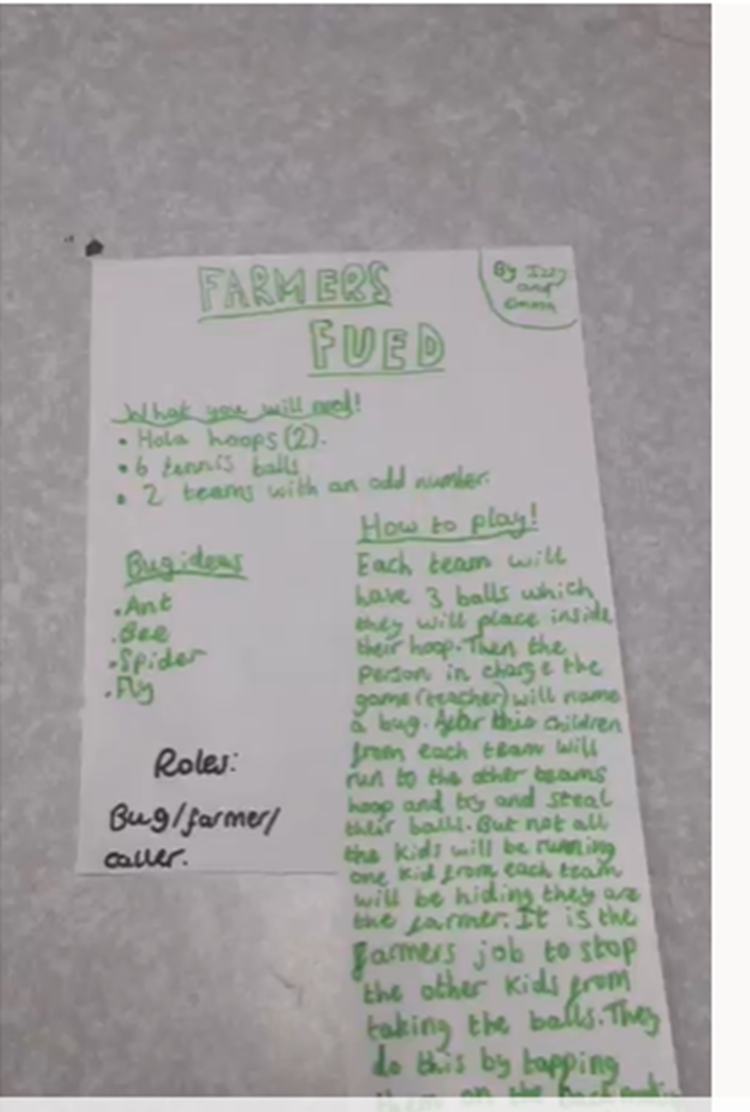 FARMERS
FUED
By Izzy
and
Emma
What you will need!
• Hola hoops (2).
• 6 tennis balls
• 2 teams with an odd number.
Bug ideas
• Ant
• Bee
• Spider
• Fly
Roles:
Bug/farmer/
caller.
How to play!
Each team will
have 3 balls which
they will place inside
their hoop. Then the
person in charge the
game (teacher) will name
a bug. After this children
from each team will
run to the other teams
hoop and try and steal
their balls. But not all
the kids will be running
one kid from each team
will be hiding they are
the farmer. It is the
farmers job to stop
the other kids from
taking the balls. They
do this by tapping
them on the back